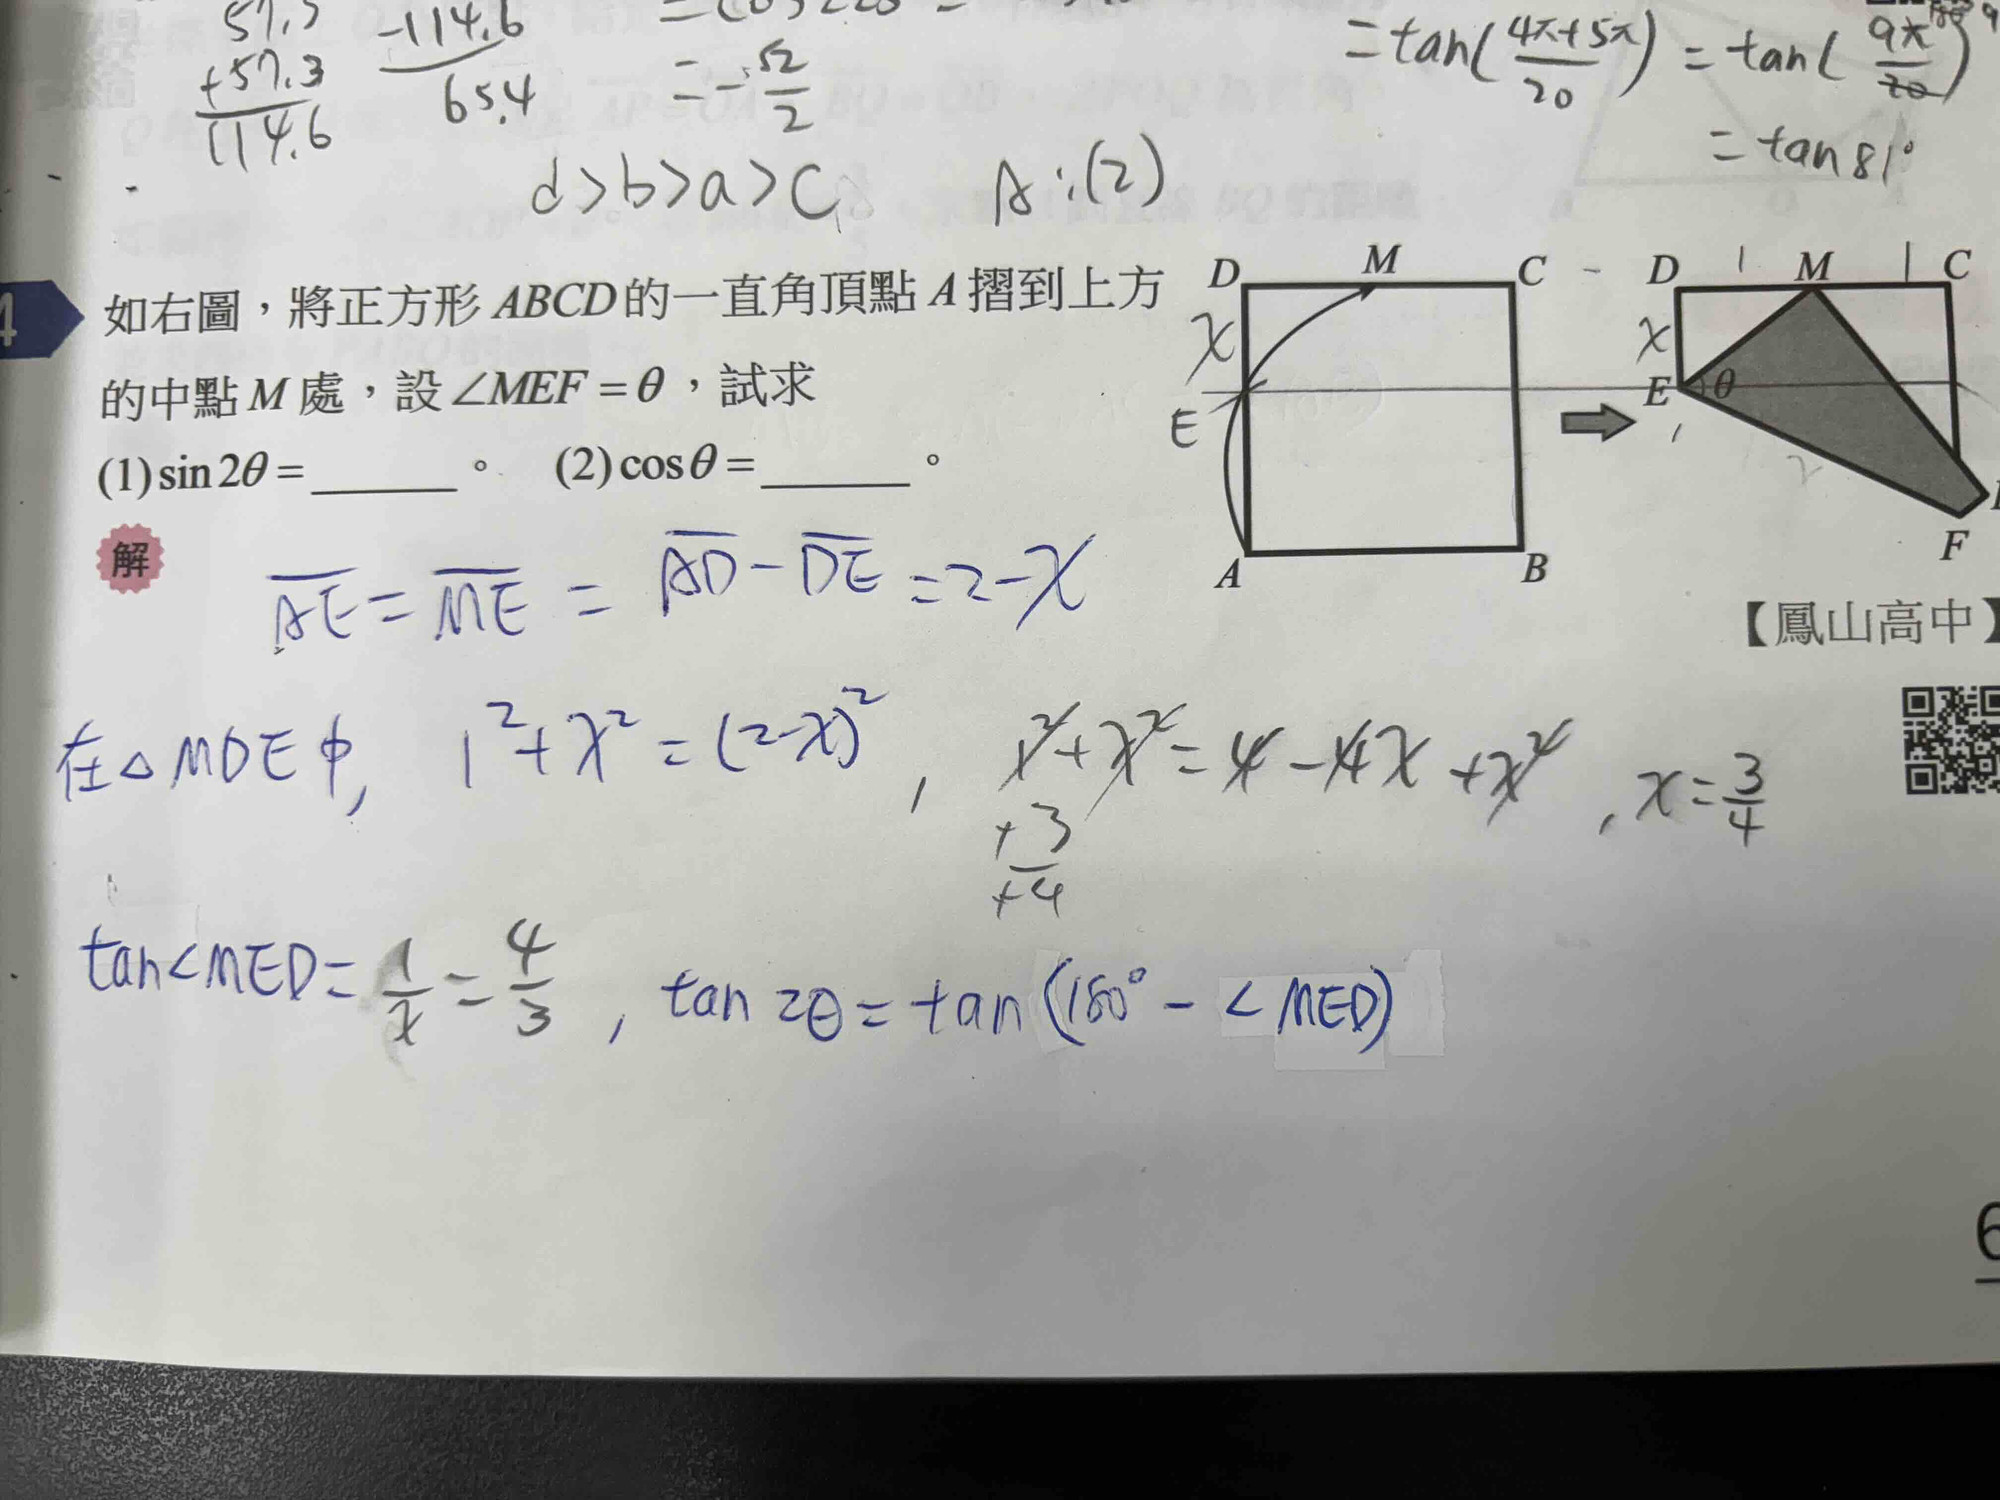 -114.6
+57.3
114.6
65.4
= -√2/2
= tan(4π+5π/20) = tan(9π/20)
= tan 81°
d>b>a>c A:(2)
4
如右圖，將正方形ABCD的一直角頂點A摺到上方
的中點M處，設∠MEF=θ，試求
(1)sin2θ=______。 (2)cosθ=______。
D M C
x
E
A B
D 1 M 1 C
x
E θ
2
F
【鳳山高中】
解
AE = ME = AD - DE = 2-x
在△MDE中, 1²+x² = (2-x)², 1²+x² = 4-4x+x², x=3/4
+3
+4
tan∠MED = 1/x = 4/3, tan 2θ = tan(180° - ∠MED)
6